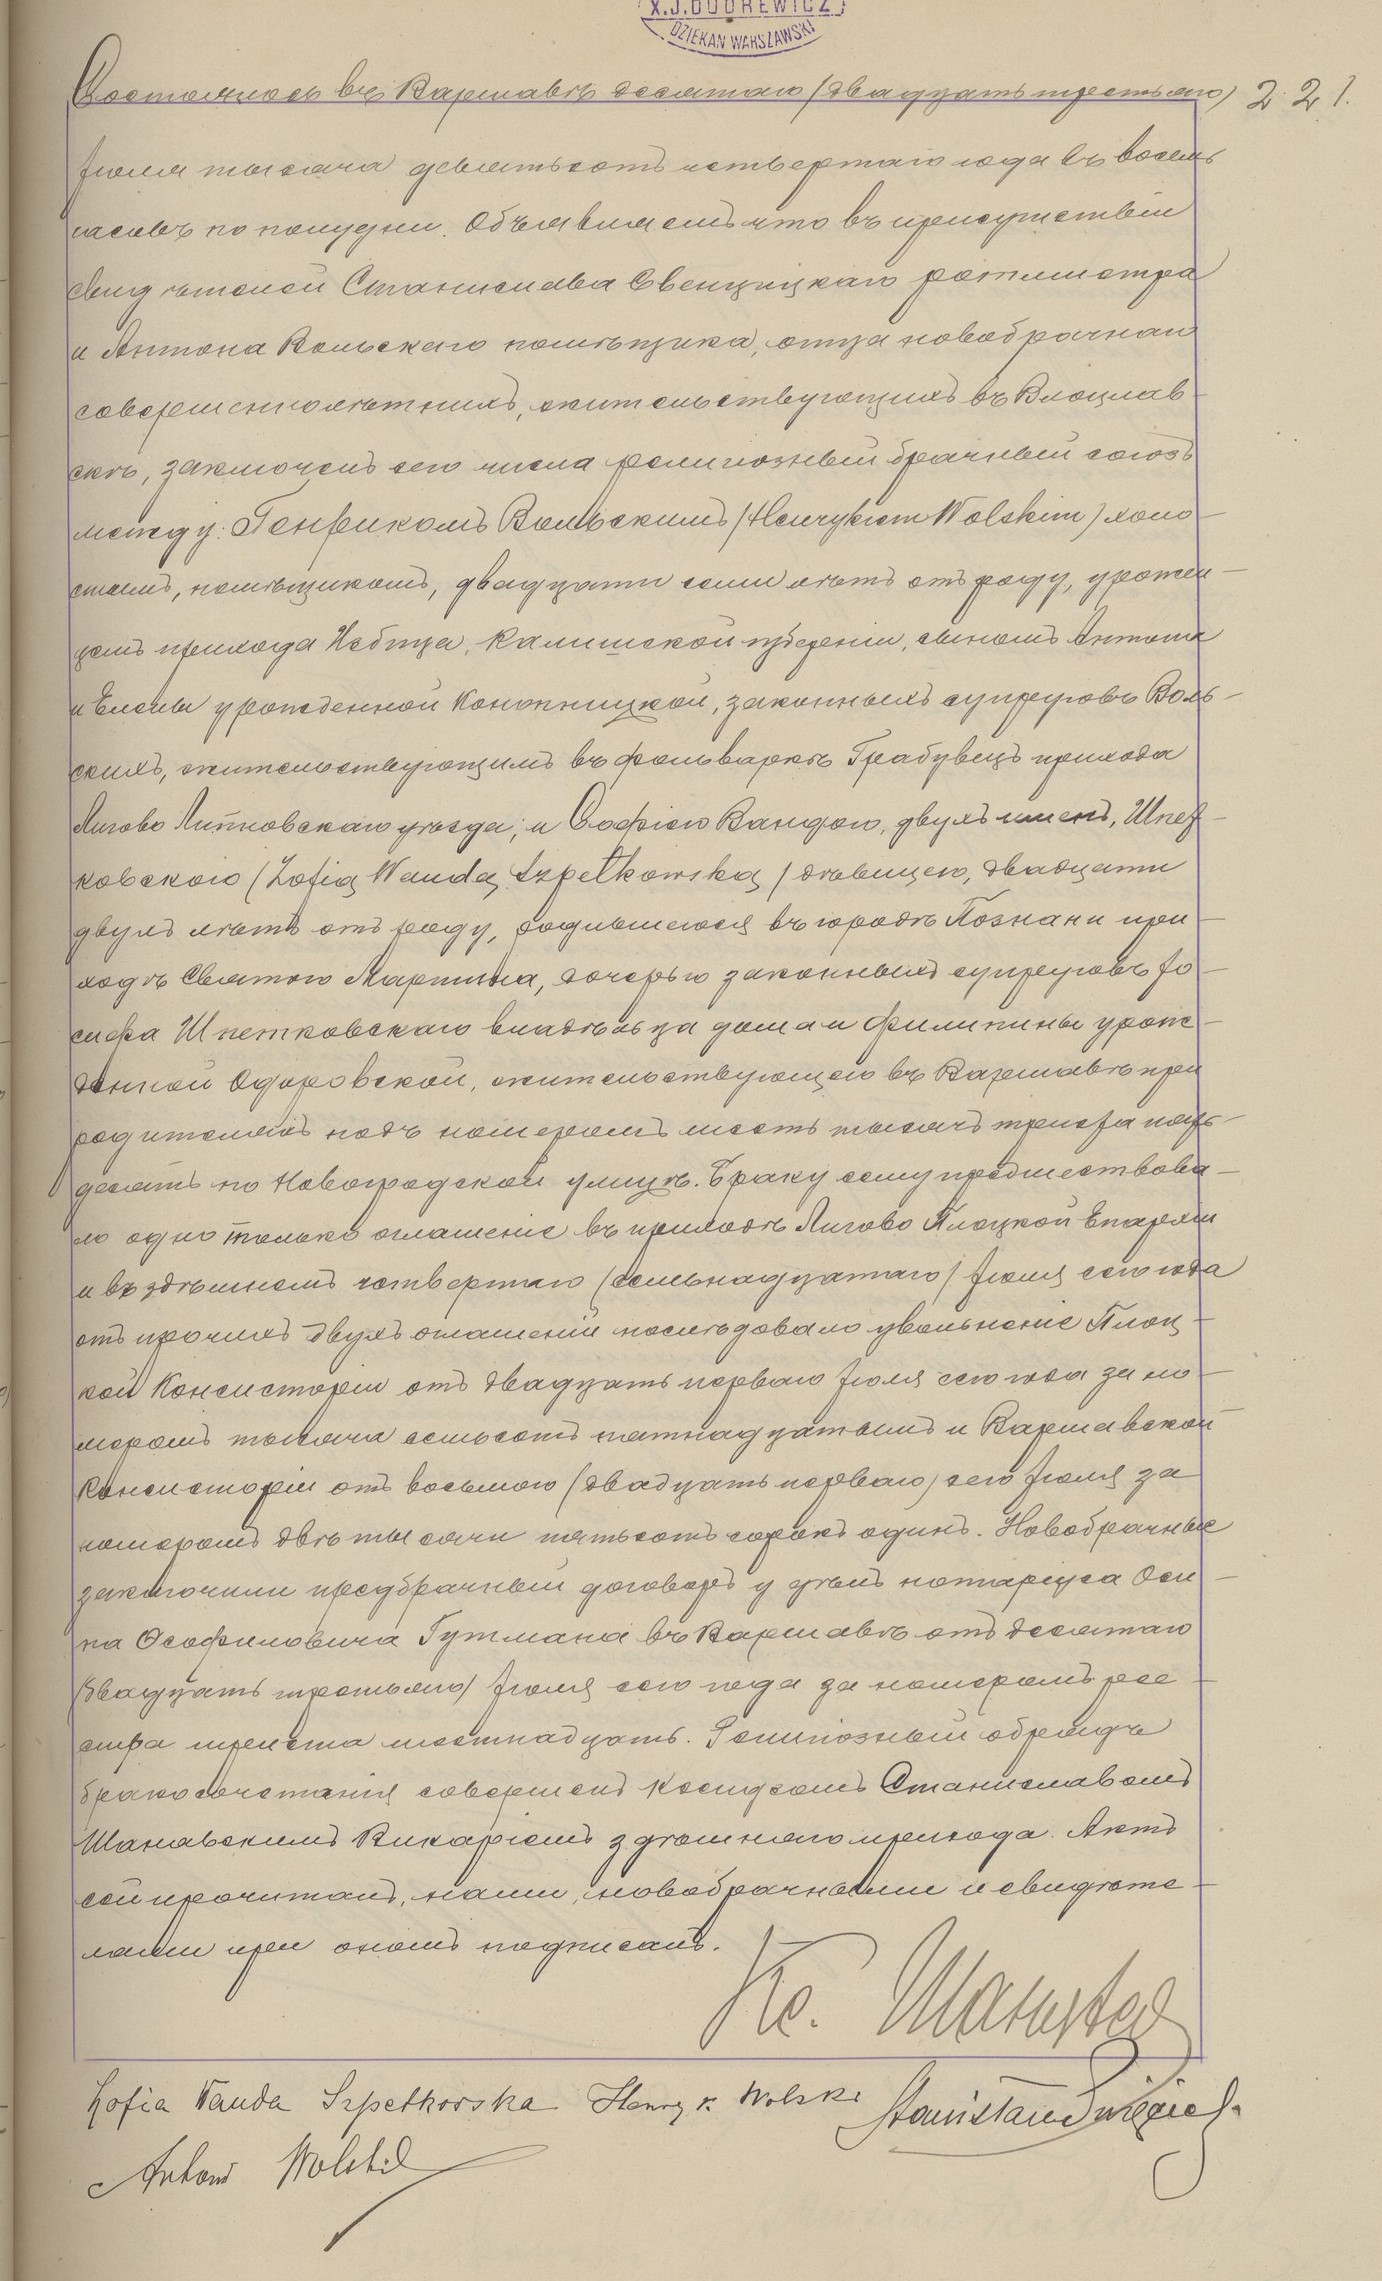 X.J.DUDREWICZ
DZIEKAN WARSZAWSKI
Состоялось въ Варшавѣ десятаго (двадцать третьяго) 221.
Іюля тысяча девятьсотъ четвертаго года въ восемь
часовъ по полудни. Объявляемъ что въ присутствіи
свидѣтелей Станислава Свенцицкаго ротмистра
и Антона Вольскаго помѣщика, отца новобрачнаго
совершеннолѣтнихъ, жительствующихъ въ Влоцлав
скѣ, заключенъ сего числа религіозный брачный союзъ
между: Генрикомъ Вольскимъ (Henrykiem Wolskim) холо
стымъ, помѣщикомъ, двадцати семи лѣтъ отъ роду, урожен
цемъ прихода Избица, Калишской губерніи, сыномъ Антона
и Елены урожденной Конопницкой, законныхъ супруговъ Воль
скихъ, жительствующимъ въ фольваркѣ Грабувецъ прихода
Лигово Липновскаго уѣзда; и Софіею Вандою, двухъ именъ, Шпет
ковскою (Zofią Wandą Szpetkowską) дѣвицею, двадцати
двухъ лѣтъ отъ роду, родившеюся въ городѣ Познани при
ходѣ Святого Мартина, дочерью законныхъ супруговъ Іо
сифа Шпетковскаго владѣльца дома и Филипины урож
денной Одоровской, жительствующею въ Варшавѣ при
родителяхъ подъ номеромъ шесть тысячъ триста пять
десятъ по Новогродской улицѣ. Браку сему предшествова
ло одно только оглашеніе въ приходѣ Лигово Плоцкой Епархіи
и въ здѣшнемъ четвертаго (семнадцатаго) Іюля сего года
отъ прочихъ двухъ оглашеній послѣдовало увольненіе Плоц
кой Консисторіи отъ двадцать перваго Іюля сего года за но
меромъ тысяча семьсотъ пятнадцатымъ и Варшавской
Консисторіи отъ восьмого (двадцать перваго) сего Іюля за
номеромъ двѣ тысячи пятьсотъ сорокъ одинъ. Новобрачные
заключили предбрачный договоръ у нотаріуса Оси
па Ѳеофиловича Гутмана въ Варшавѣ отъ десятаго
(двадцать третьяго) Іюля сего года за номеромъ рее
стра триста шестнадцать. Религіозный обрядъ
бракосочетанія совершенъ Ксендзомъ Станиславомъ
Шанявскимъ Викаріемъ здѣшняго прихода. Актъ
сей прочитанъ, нами, новобрачными и свидѣте
лями при ономъ подписанъ.
Кс.
Zofia Wanda Szpetkowska Henryk Wolski
Antoni Wolski